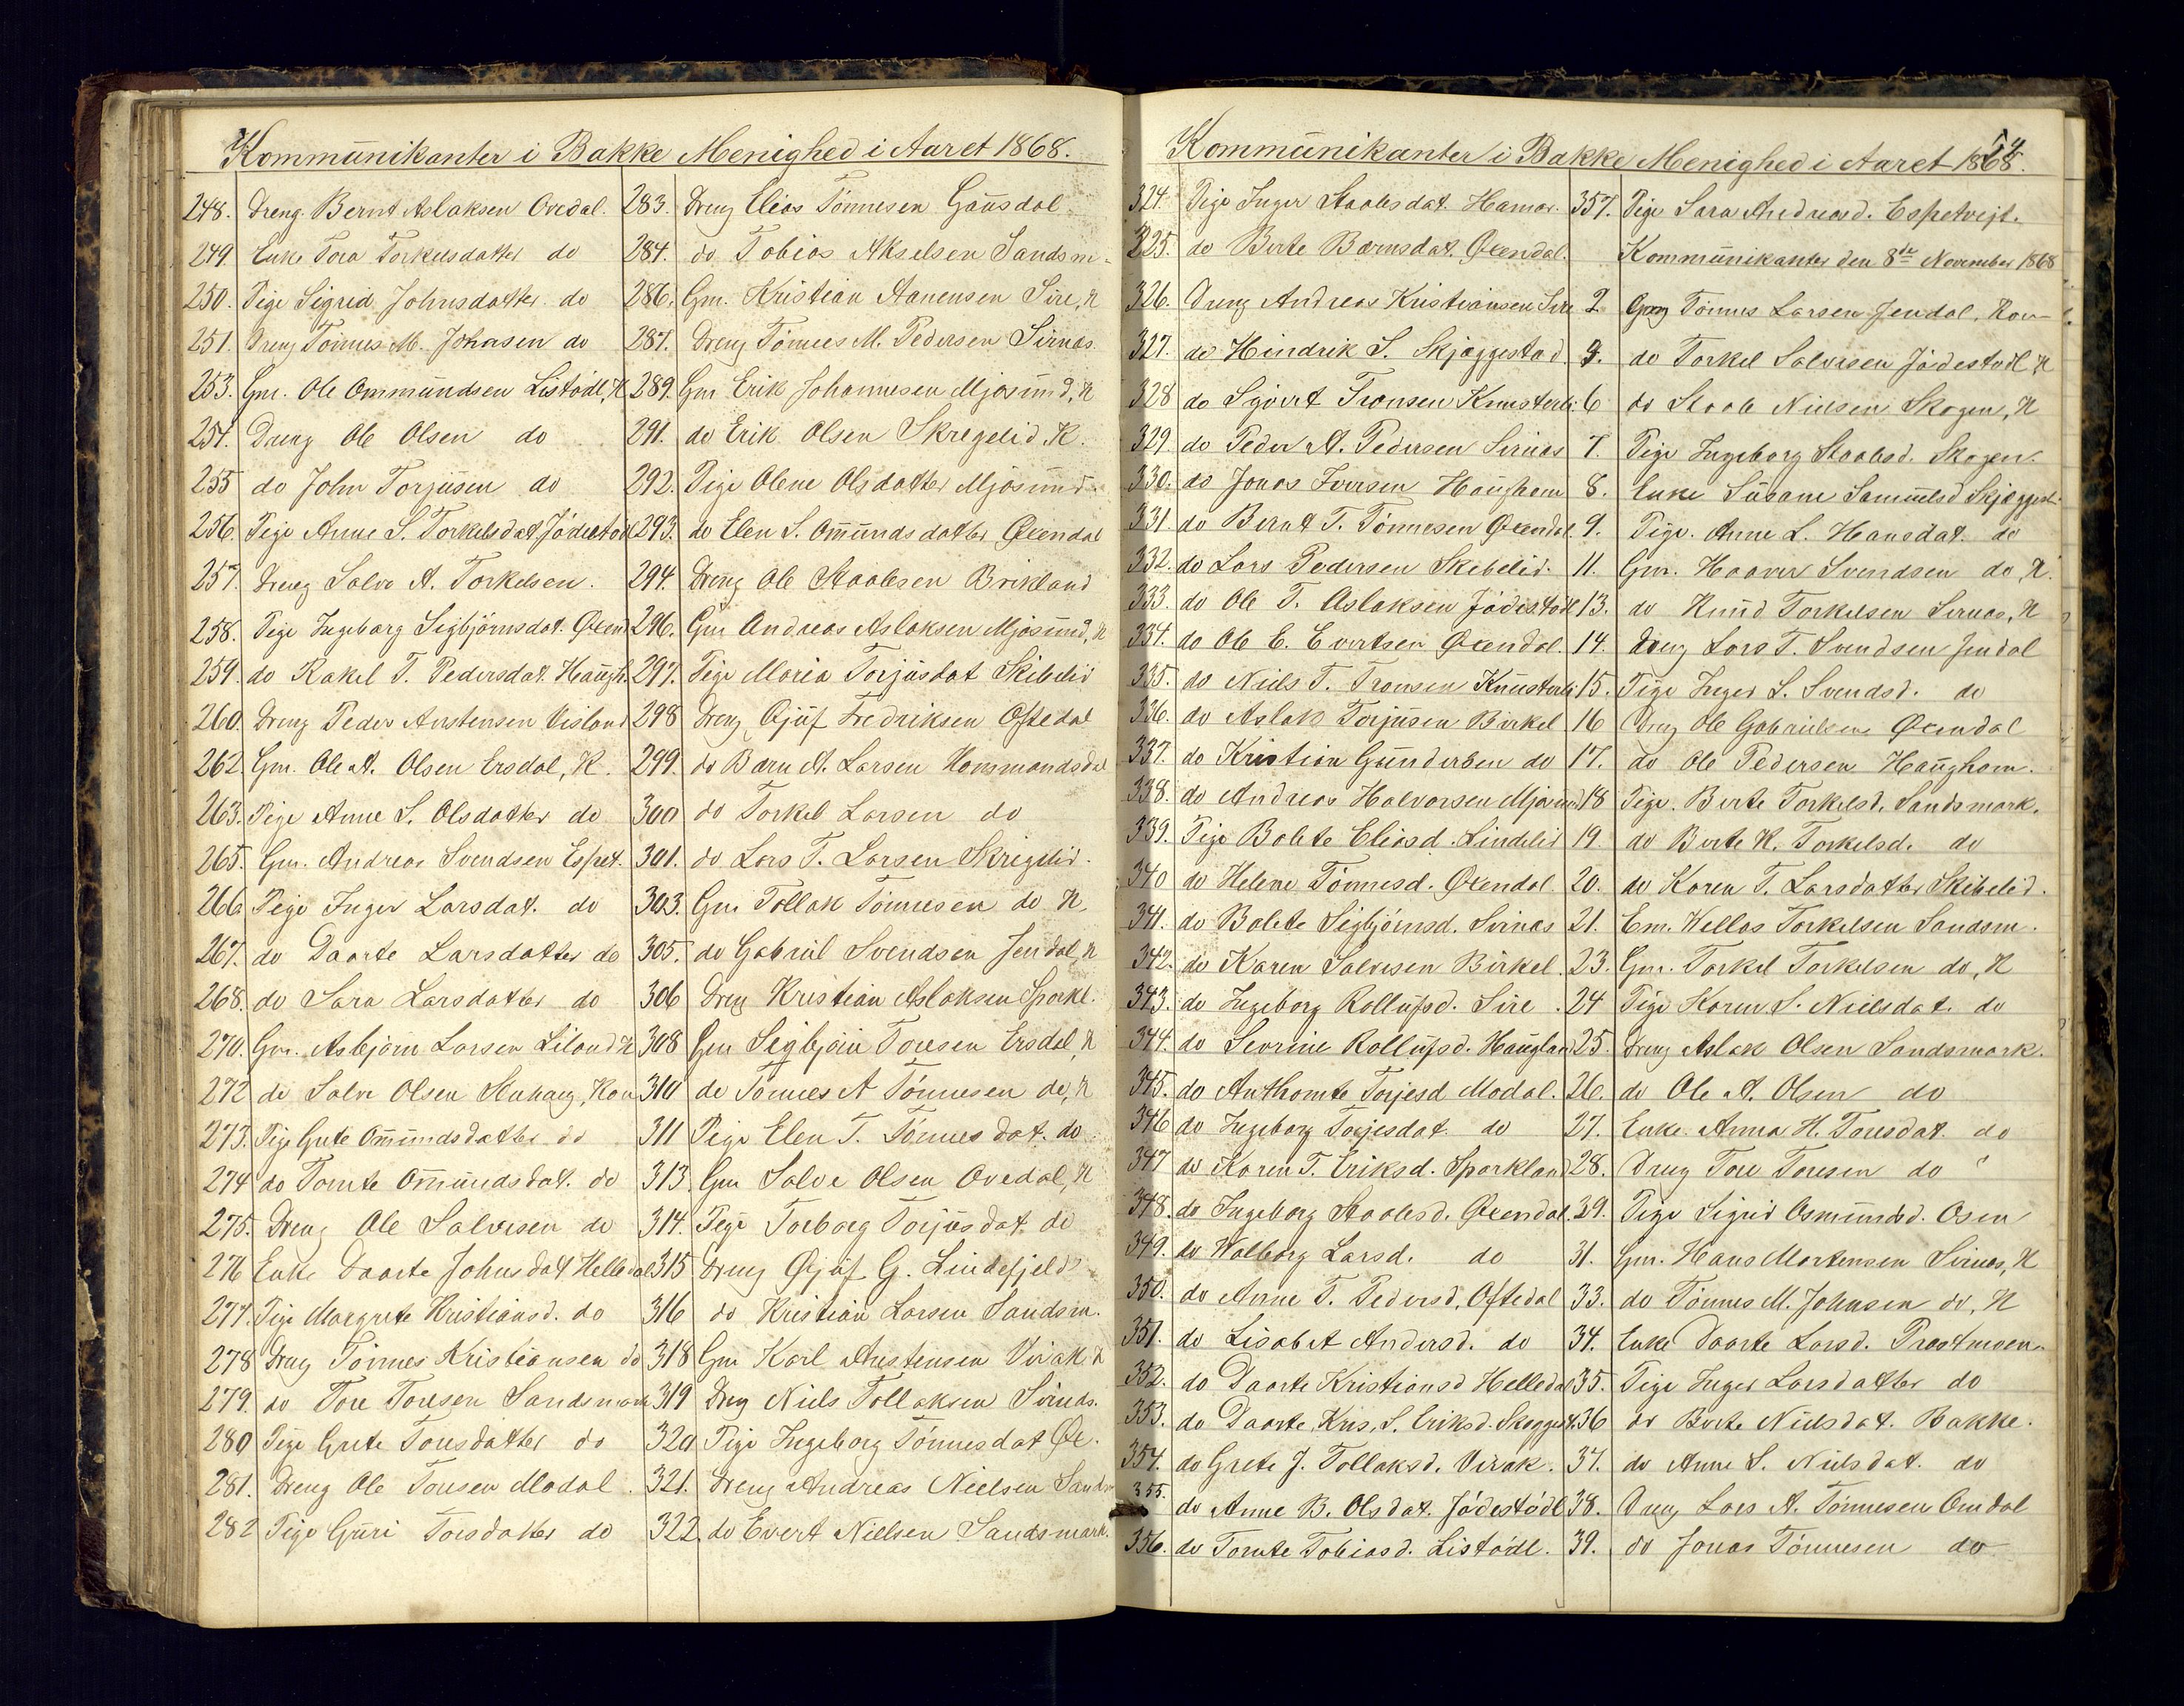 Kommunikanter i Bakke Menighed i Aaret 1868.
248. Dreng Bernt Aslaksen Ovedal.
249. Enke Tora Torkelsdatter do
250. Pige Sigrid Johnsdatter do
251. Dreng Tönnes M. Johnsen do
253. Gm. Ole Ommundsen Listödl, K
254. Dreng Ole Olsen do
255 do John Torjusen do
256. Pige Anne S. Torkelsdat Jödestödl
257. Dreng Salve A. Torkelsen.
258. Pige Ingeborg Sigbjörnsdat. Øxend
259. do Rakel T. Pedersdat. Haugh.
260. Dreng Peder Anstensen Visland
262. Gm. Ole A. Olsen Ersdal, K.
263. Pige Anne S. Olsdatter do
265. Gm. Andreas Svendsen Espet.
266 Pige Inger Larsdat. do
267. do Daarte Larsdatter do
268. do Sara Larsdatter do
270. Gm. Asbjörn Larsen Liland K
272 do Salve Olsen Stuhaug, Kon
273. Pige Grete Ommundsdatter do
274 do Tomte Ommundsdat. do
275. Dreng Ole Salvesen do
276 Enke Daarte Johnsdat Helledal
277. Pige Margrete Kristiansd. do
278 Dreng Tönnes Kristiansen do
279. do Tore Toresen Sandsmark
280 Pige Grete Toresdatter do
281. Dreng Ole Tonsen Modal.
282 Pige Guri Torsdatter do
283. Dreng Elias Tönnesen Gausdal
284. do Tobias Akselsen Sandsm.
286. Gm. Kristian Aanensen Sire, K
287. Dreng Tönnes M. Pedersen Sirnæs.
289. Gm Erik Johannesen Mjosund, K
291. do Erik Olsen Skregelid K.
292. Pige Olene Olsdatter Mjösund.
293. do Elen S. Ommundsdatter Øxendal
294. Dreng Ole Staalesen Birkland
296. Gm Andreas Aslaksen Mjösund, K
297. Pige Maria Torjusdat Skibelid
298 Dreng Gjuf Fredriksen Oftedal
299. do Bærn A. Larsen Honsmandsdal
300 do Torkel Larsen do
301. do Lars T. Larsen Skregelid.
303. Gm Tollak Tönnesen do K
305. do Gabriel Svendsen Jendal, K
306 Dreng Kristian Aslaksen Sparkl.
308 Gm Sigbjörn Toresen Ersdal, K
310 do Tönnes A Tönnesen do, K
311 Pige Elen T. Tönnesdat. do
313. Gm Salve Olsen Ovedal, K
314. Pige Torborg Torjusdat do
315 Dreng Gjuf G. Lindefjeld
316 do Kristian Larsen Sandsm.
318 Gm Karl Anstensen Virak K
319 Dreng Niels Tollaksen Sirnæs.
320 Pige Ingeborg Tönnesdat Øx.
321. Dreng Andreas Nielsen Sandsm
322. do Evert Nielsen Sandsmark.
Kommunikanter i Bakke Menighed i Aaret 1868.
54
324. Pige Inger Staalesdat. Hamar.
325. do Berte Bærnsdat. Øxendal.
326. Dreng Andreas Kristiansen Sire
327. do Hindrik S. Skjæggestad
328 do Sigvert Tronsen Knusterli
329. do Peder A. Pedersen Sirnæs
330. do Jonas Iversen Haughom
331. do Bernt T. Tönnesen Øxendal.
332. do Lars Pedersen Skibelid.
333. do Ole T. Aslaksen Jödestödl
334. do Ole E. Evertsen Øxendal.
335. do Niels T. Tronsen Knusterli
336. do Aslak Torjusen Birkel
337. do Kristian Gundersen do
338. do Andreas Halvorsen Mjosund
339. Pige Bolete Eliasd. Lindelid
340 do Helene Tönnesd. Øxendal
341. do Bolete Sigbjörnsd. Sirnæs
342. do Karen Salvesen Birkel.
343. do Ingeborg Rollufsd. Sire.
344. do Sevrine Rollufsd. Haugland
345. do Anthomte Torjesd Modal.
346 do Ingeborg Torjesdat. do
347 do Karen T. Eriksd. Sparkland
348. do Ingeborg Staalesd. Øxendal.
349. do Walborg Larsd. do
350. do Anne T. Pedersd. Oftedal
351. do Lisabet Andersd. do
352. do Daarte Kristiansd Helledal
353. do Daarte Kris. S. Eriksd. Skeggest.
354. do Grete J. Tollaksd. Virak.
355. do Anne B. Olsdat. Jödestödl
356. do Tomte Tobiasd. Listödl.
357. Pige Sara Andreasd. Espetvejt.
Kommunikanter den 8de November 1868
2. Gm Tönnes Larsen Jendal, Kon
4. do Torkel Salvesen Jödestödl K
6 do Staale Nielsen Skogen, K
7. Pige Ingeborg Staalesd. Skogen.
8. Enke Susane Samuelsd Skjæggest.
9. Pige. Anne L. Hansdat. do
11. Gm. Haaver Svendsen do, K.
13. do Knud Torkelsen Sirnæs, K
14. Dreng Lars T. Svendsen Jendal
15. Pige Inger L. Svendsd. do
16 Dreng Ole Gabrielsen Øxendal
17. do Ole Pedersen Haughom.
18 Pige. Berte Torkelsd. Sandsmark.
19. do Berte K. Torkelsd. do
20. do Karen T. Larsdatter Skibelid.
21. Em. Wellas Torkelsen Sandsm.
23. Gm. Torkel Torkelsen do, K
24 Pige Karen S. Nielsdat. do
25. Dreng Aslak Olsen Sandsmark.
26. do Ole A. Olsen do
27. Enke Anna H. Toresdat. do
28. Dreng Tore Toresen do
29. Pige Sigrid Osmundsd. Osen
31. Gm. Hans Mortensen Sirnæs, K
33. do Tönnes M. Johnsen do, K
34. Enke Daarte Larsd. Prestmoen
35. Pige Inger Larsdatter do
36 do Berte Nielsdat. Bakke.
37. do Anne S. Nielsdat. do
38. Dreng Lars A. Tönnesen Omdal
39. do Jonas Tönnesen do